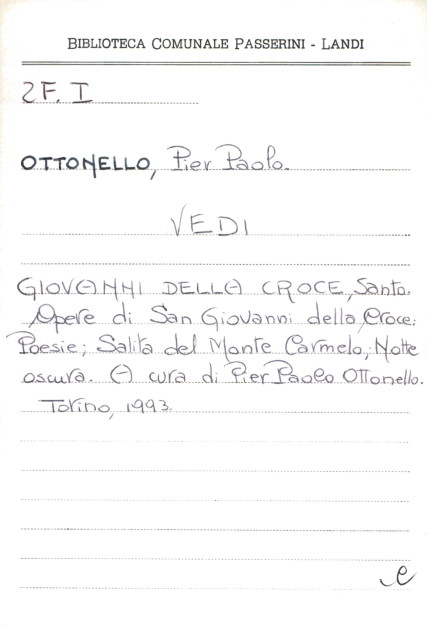 BIBLIOTECA COMUNALE PASSERINI - LANDI
2F. I
OTTONELLO, Pier Paolo.
VEDI
GIOVANNI DELLA CROCE, Santo.
Opere di San Giovanni della Croce:
Poesie; Salita del Monte Carmelo; Notte
oscura. A cura di Pier Paolo Ottonello.
Torino, 1993.
e